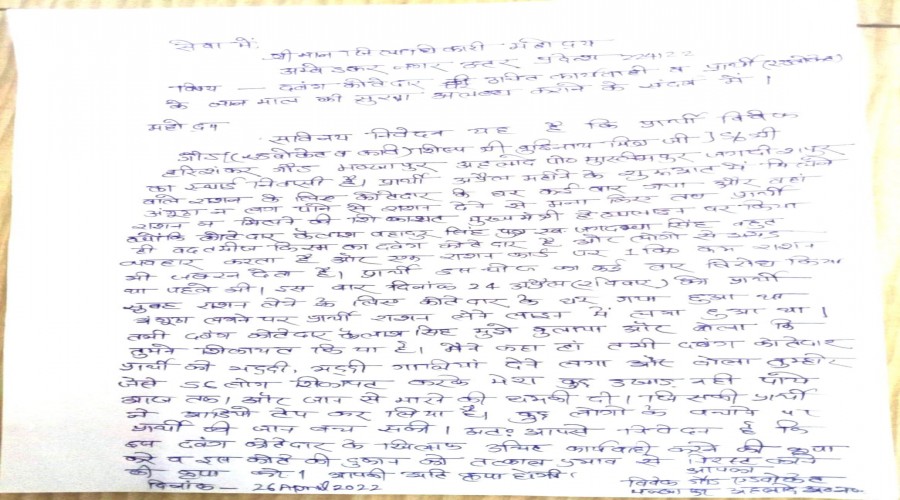 सेवा में,
श्रीमान जिलाधिकारी महोदय
अम्बेडकर नगर उत्तर प्रदेश 224122
विषय — दबंग कोटेदार उचित कार्यवाही व प्रार्थी (एडवोकेट)
के जान माल की सुरक्षा उपलब्ध कराने के संदर्भ में।
महोदय
सविनय निवेदन यह है कि प्रार्थी विवेक
गौड़ (एडवोकेट व कवि) शिष्य श्री मिश्र जी S/o श्री
हरिशंकर गौड़ अहलाद
का स्थाई निवासी है। प्रार्थी अप्रैल महीने के शुरुआत में मिलने
वाले राशन के लिए कोटेदार के घर कई बार गया और वहां
अंगूठा न लग पाने से राशन देने से मना किए तब प्रार्थी
राशन न मिलने की शिकायत मुख्यमंत्री हेल्पलाइन पर किया
क्योंकि कोटेदार कैलाश बहादुर सिंह पुत्र स्व सिंह बहुत
ही बदतमीज किस्म का दबंग कोटेदार है और लोगों से अभद्र
व्यवहार करता है और एक राशन कार्ड पर 1 किलो कम राशन
भी जबरन देता है। प्रार्थी इस चीज का कई बार विरोध किया
था पहले भी। इस बार दिनांक 24 अप्रैल (रविवार) को प्रार्थी
सुबह राशन लेने के लिए कोटेदार के घर गया हुआ था
अंगूठा लगने पर प्रार्थी राशन लेने लाइन में लगा हुआ था।
तभी दबंग कोटेदार कैलाश सिंह मुझे बुलाया और बोला कि
तुमने शिकायत किया है। मैंने कहा हां तभी दबंग कोटेदार
प्रार्थी को भद्दी, भद्दी गालियां देने लगा और बोला तुम्हारे
जैसे 56 लोग शिकायत करके मेरा कुछ उखाड़ नहीं पाये
आज तक। और जान से मारने की धमकी दी। जिसकी प्रार्थी
ने आडियो टेप कर लिया है। कुछ लोगों के बचाने पर
प्रार्थी की जान बच सकी। अतः आपसे निवेदन है कि
इस दबंग कोटेदार के खिलाफ उचित कार्यवाही करने की कृपा
करें व इस कोटे की दुकान को तत्काल प्रभाव से निरस्त करने
की कृपा करें। आपकी अति कृपा होगी। आपका
दिनांक — 26 April 2022 विवेक गौड़ एडवोकेट